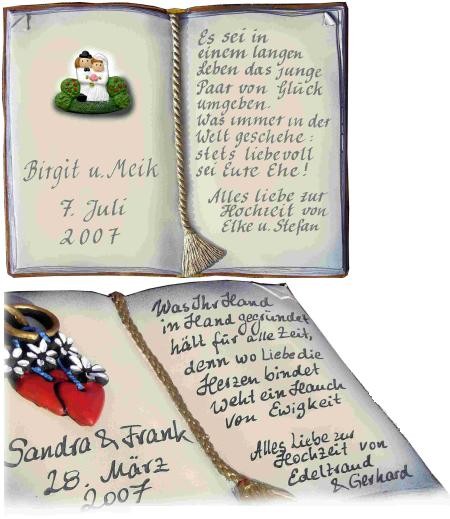 Birgit u. Meik
7. Juli
2007
Es sei in
einem langen
Leben das junge
Paar von Glück
umgeben.
Was immer in der
Welt geschehe:
stets liebevoll
sei Eure Ehe!
Alles liebe zur
Hochzeit von
Elke u. Stefan
Sandra & Frank
28. März
2007
Was Ihr Hand
in Hand gegründet
hält für alle Zeit,
denn wo Liebe die
Herzen bindet
weht ein Hauch
von Ewigkeit
Alles Liebe zur
Hochzeit von
Edeltraud
& Gerhard